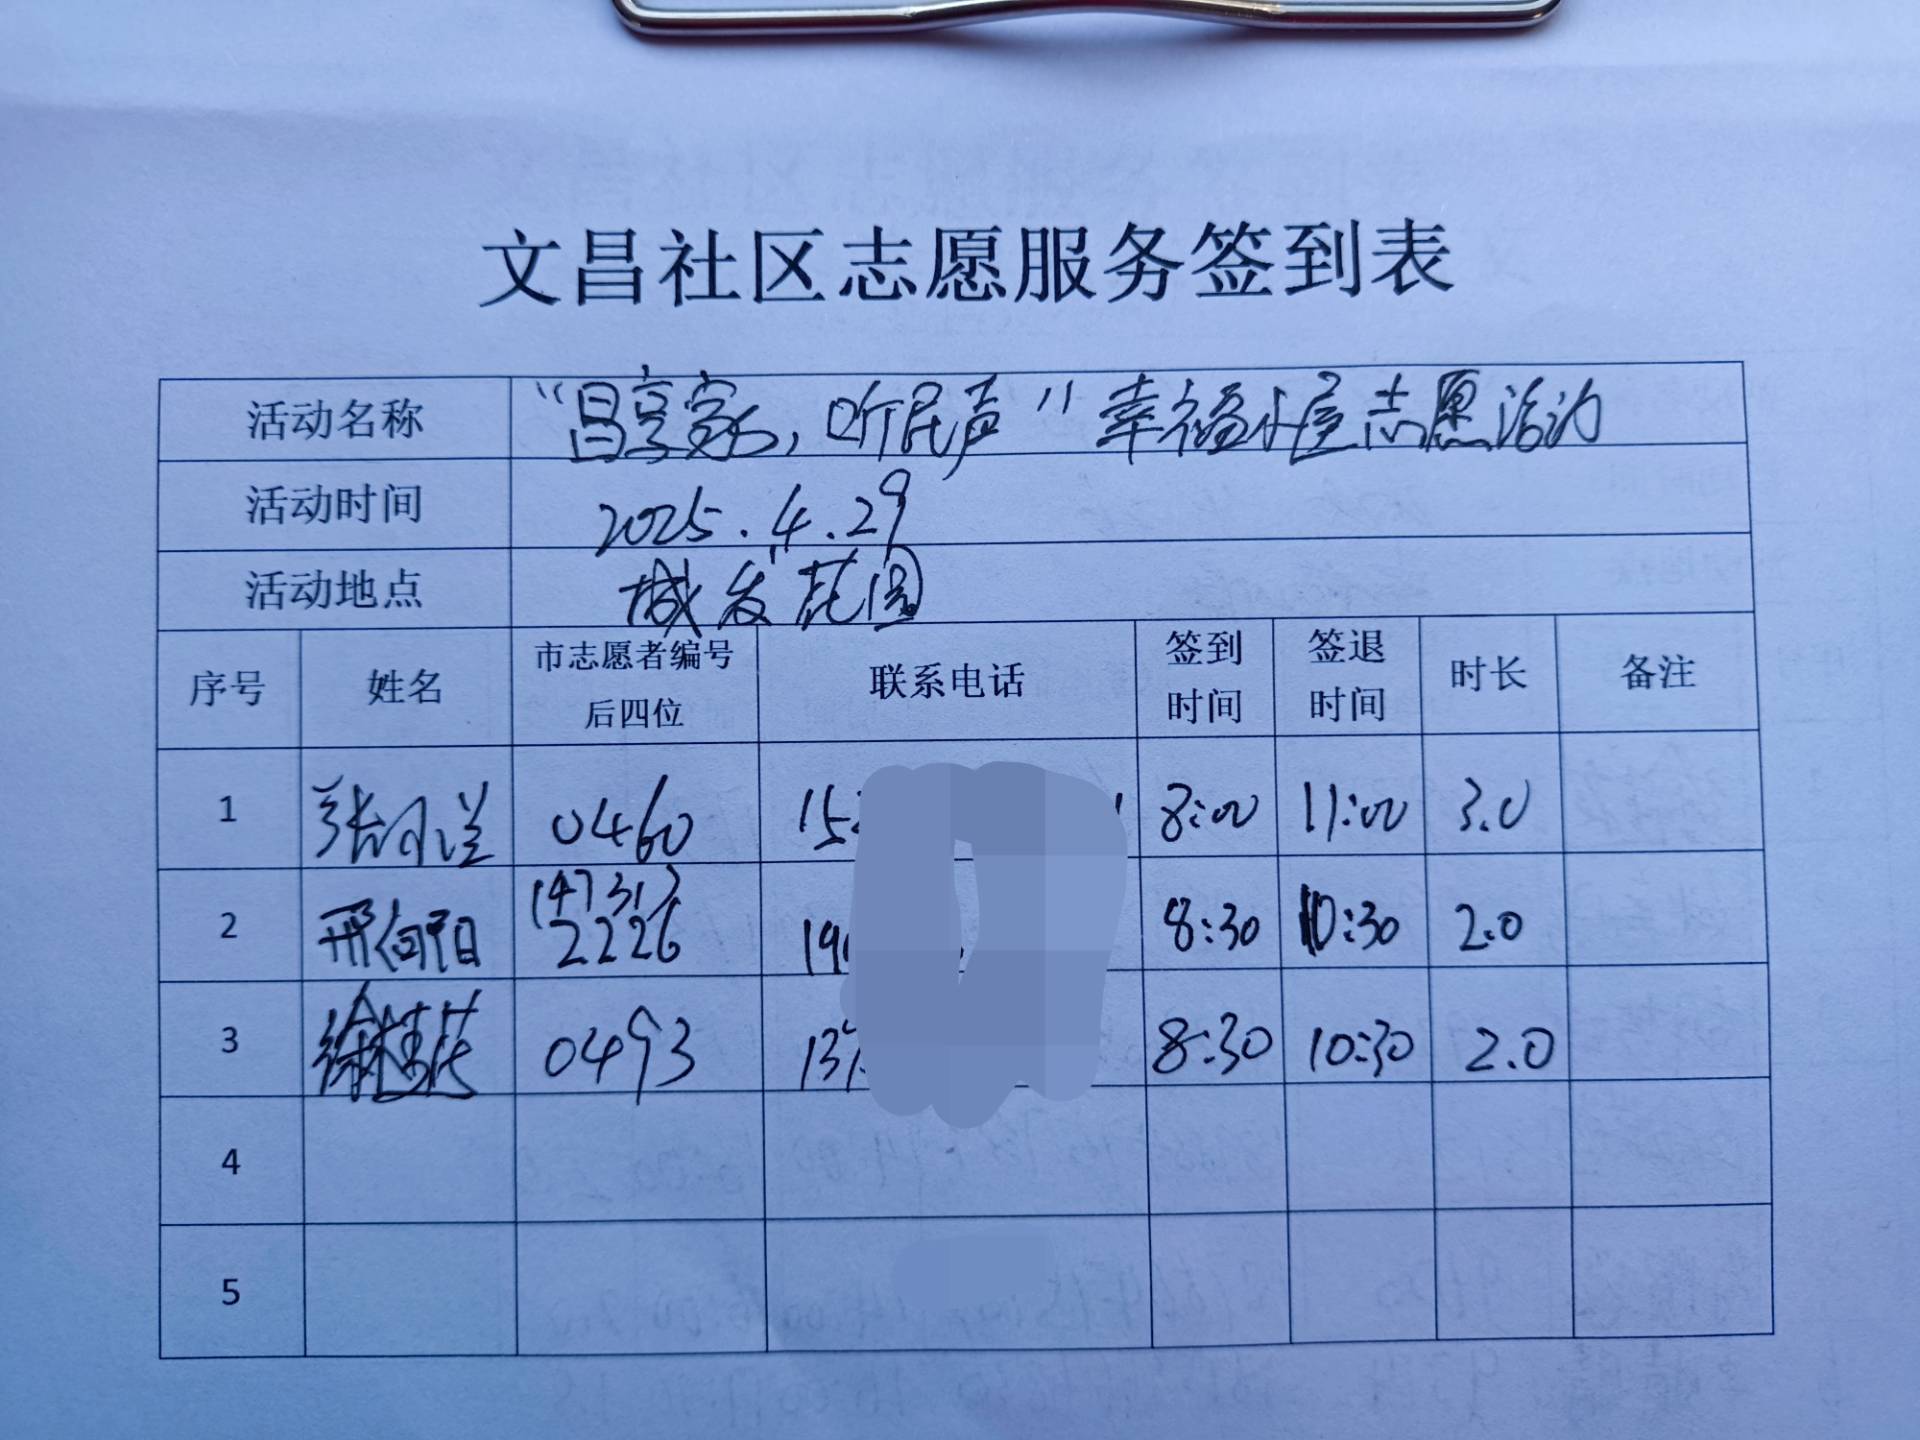 文昌社区志愿服务签到表
活动名称 "昌享家，听民声"幸福小屋志愿活动
活动时间 2025.4.29
活动地点 城发花园
序号 姓名 市志愿者编号后四位 联系电话 签到时间 签退时间 时长 备注
1 张小兰 0460 15 8:00 11:00 3.0
2 邢向阳 147313 2226 19 8:30 10:30 2.0
3 徐桂花 0493 137 8:30 10:30 2.0
4
5